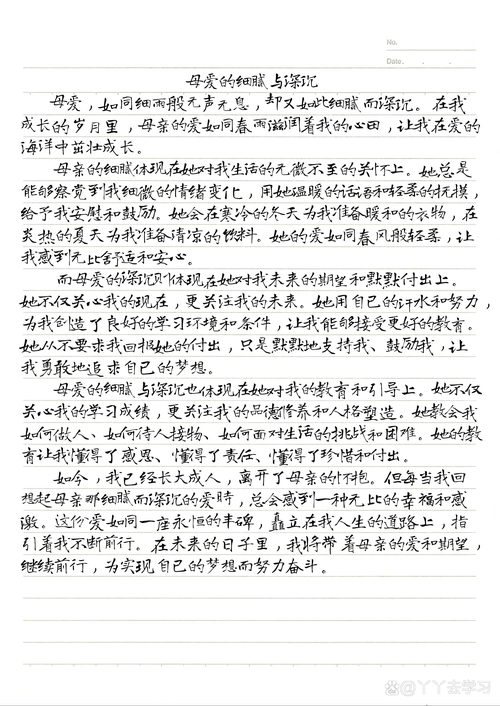 No.
Date.
母爱的细腻与深沉
母爱，如同细雨般无声无息，却又如此细腻而深沉。在我
成长的岁月里，母亲的爱如同春雨滋润着我的心田，让我在爱的
海洋中茁壮成长。
母亲的细腻体现在她对我生活的无微不至的关怀上。她总是
能够察觉到我细微的情绪变化，用她温暖的话语和轻柔的抚摸，
给予我安慰和鼓励。她会在寒冷的冬天为我准备暖和的衣物，在
炎热的夏天为我准备清凉的饮料。她的爱如同春风般轻柔，让
我感到无比舒适和安心。
而母爱的深沉则体现在她对我未来的期望和默默付出上。
她不仅关心我的现在，更关注我的未来。她用自己的汗水和努力，
为我创造了良好的学习环境和条件，让我能够接受更好的教育。
她从不要求我回报她的付出，只是默默地支持我、鼓励我，让
我勇敢地追求自己的梦想。
母爱的细腻与深沉也体现在她对我的教育和引导上。她不仅
关心我的学习成绩，更关注我的品德修养和人格塑造。她教会我
如何做人、如何待人接物、如何面对生活的挑战和困难。她的教
育让我懂得了感恩、懂得了责任、懂得了珍惜和付出。
如今，我已经长大成人，离开了母亲的怀抱。但每当我回
想起母亲那细腻而深沉的爱时，总会感到一种无比的幸福和感
激。这份爱如同一座永恒的丰碑，矗立在我人生的道路上，指
引着我不断前行。在未来的日子里，我将带着母亲的爱和期望，
继续前行，为实现自己的梦想而努力奋斗。
@丫丫去学习